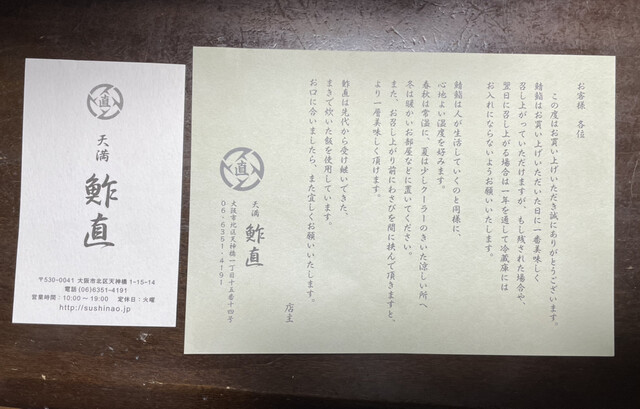 直
天満
鮓直
〒530-0041 大阪市北区天神橋 1-15-14
電話 (06)6351-4191
営業時間：10:00〜19:00 定休日：火曜
http://sushinao.jp
お客様 各位
この度はお買い上げいただき誠にありがとうございます。
鯖鮨はお買い上げいただいた日に一番美味しく
召し上がっていただけますが、もし残された場合や、
翌日に召し上がる場合は一年を通して冷蔵庫には
お入れにならないようお願いいたします。
鯖鮨は人が生活していくのと同様に、
心地よい温度を好みます。
春秋は常温に、夏は少しクーラーのきいた涼しい所へ
冬は暖かいお部屋などに置いてください。
また、お召し上がり前にわさびを間に挟んで頂きますと、
より一層美味しく頂けます。
鮓直は先代から受け継いできた、
まきで炊いた飯を使用しています。
お口に合いましたら、また宜しくお願いいたします。
店主
直
天満
鮓直
大阪市北区天神橋一丁目十五番十四号
06-6351-4191